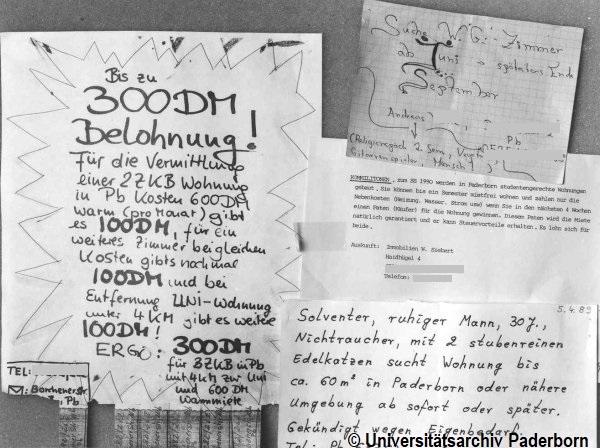 Bis zu
300DM
Belohnung!
Für die Vermittlung
einer 2ZKB Wohnung
in Pb Kosten 600DM
warm (pro Monat) gibt
es 100DM, für ein
weiteres Zimmer bei gleichen
Kosten gibts nochmal
100DM und bei
Entfernung UNI-Wohnung
unter 4KM gibt es weitere
100DM!
ERGO: 300DM
für 3ZKB in Pb
mit 4km zur Uni
und 600 DM
Warmmiete
TEL:
Borchenerstr
Pb
Suche W.G. Zimmer
ab Juni - spätestens Ende
September
Andreas
Pb
(Religionspäd. 2. Sem,
Gitarrenspieler, Mensch)
KOMMILITONEN, zum SS 1990 werden in Paderborn studentengerechte Wohnungen
gebaut. Sie können bis ein Semester mietfrei wohnen und zahlen nur die
Nebenkosten (Heizung, Wasser, Strom) wenn Sie in den nächsten 4 Wochen
einen Paten (Käufer) für die Wohnung gewinnen. Diesem Paten wird die Miete
natürlich garantiert und er kann Steuervorteile erhalten. Es lohn sich für
beide.
Auskunft: Immobilien W. Siebert
Haidhügel 4
Telefon:
5.4.89
Solventer, ruhiger Mann, 30 J.,
Nichtraucher, mit 2 stubenreinen
Edelkatzen sucht Wohnung bis
ca. 60m² in Paderborn oder nähere
Umgebung ab sofort oder später.
Gekündigt wegen Eigenbedarf.
Tel: Pb
© Universitätsarchiv Paderborn